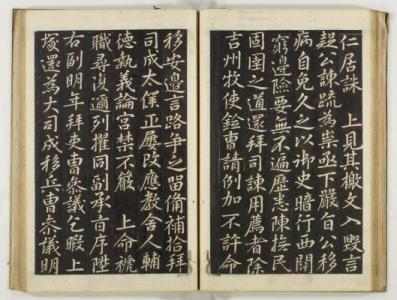 仁居誅 上見其檄文入毀言
起公諫疏為祟亟下嚴旨公移
病自免久之以御史暗行西關
窮邊險要無不遍歷悉陳捄民
固圉之道還拜司諫用薦者除
吉州牧使銓曹請例加不許命
移安邊言路爭之留備補拾拜
司成太僕正屢改應教舍人輔
德執義論宮禁不嚴 上命褫
職尋復邇列擢同副承旨序陞
右副明年拜吏曹參議乞暇上
塚還為大司成移兵曹參議明